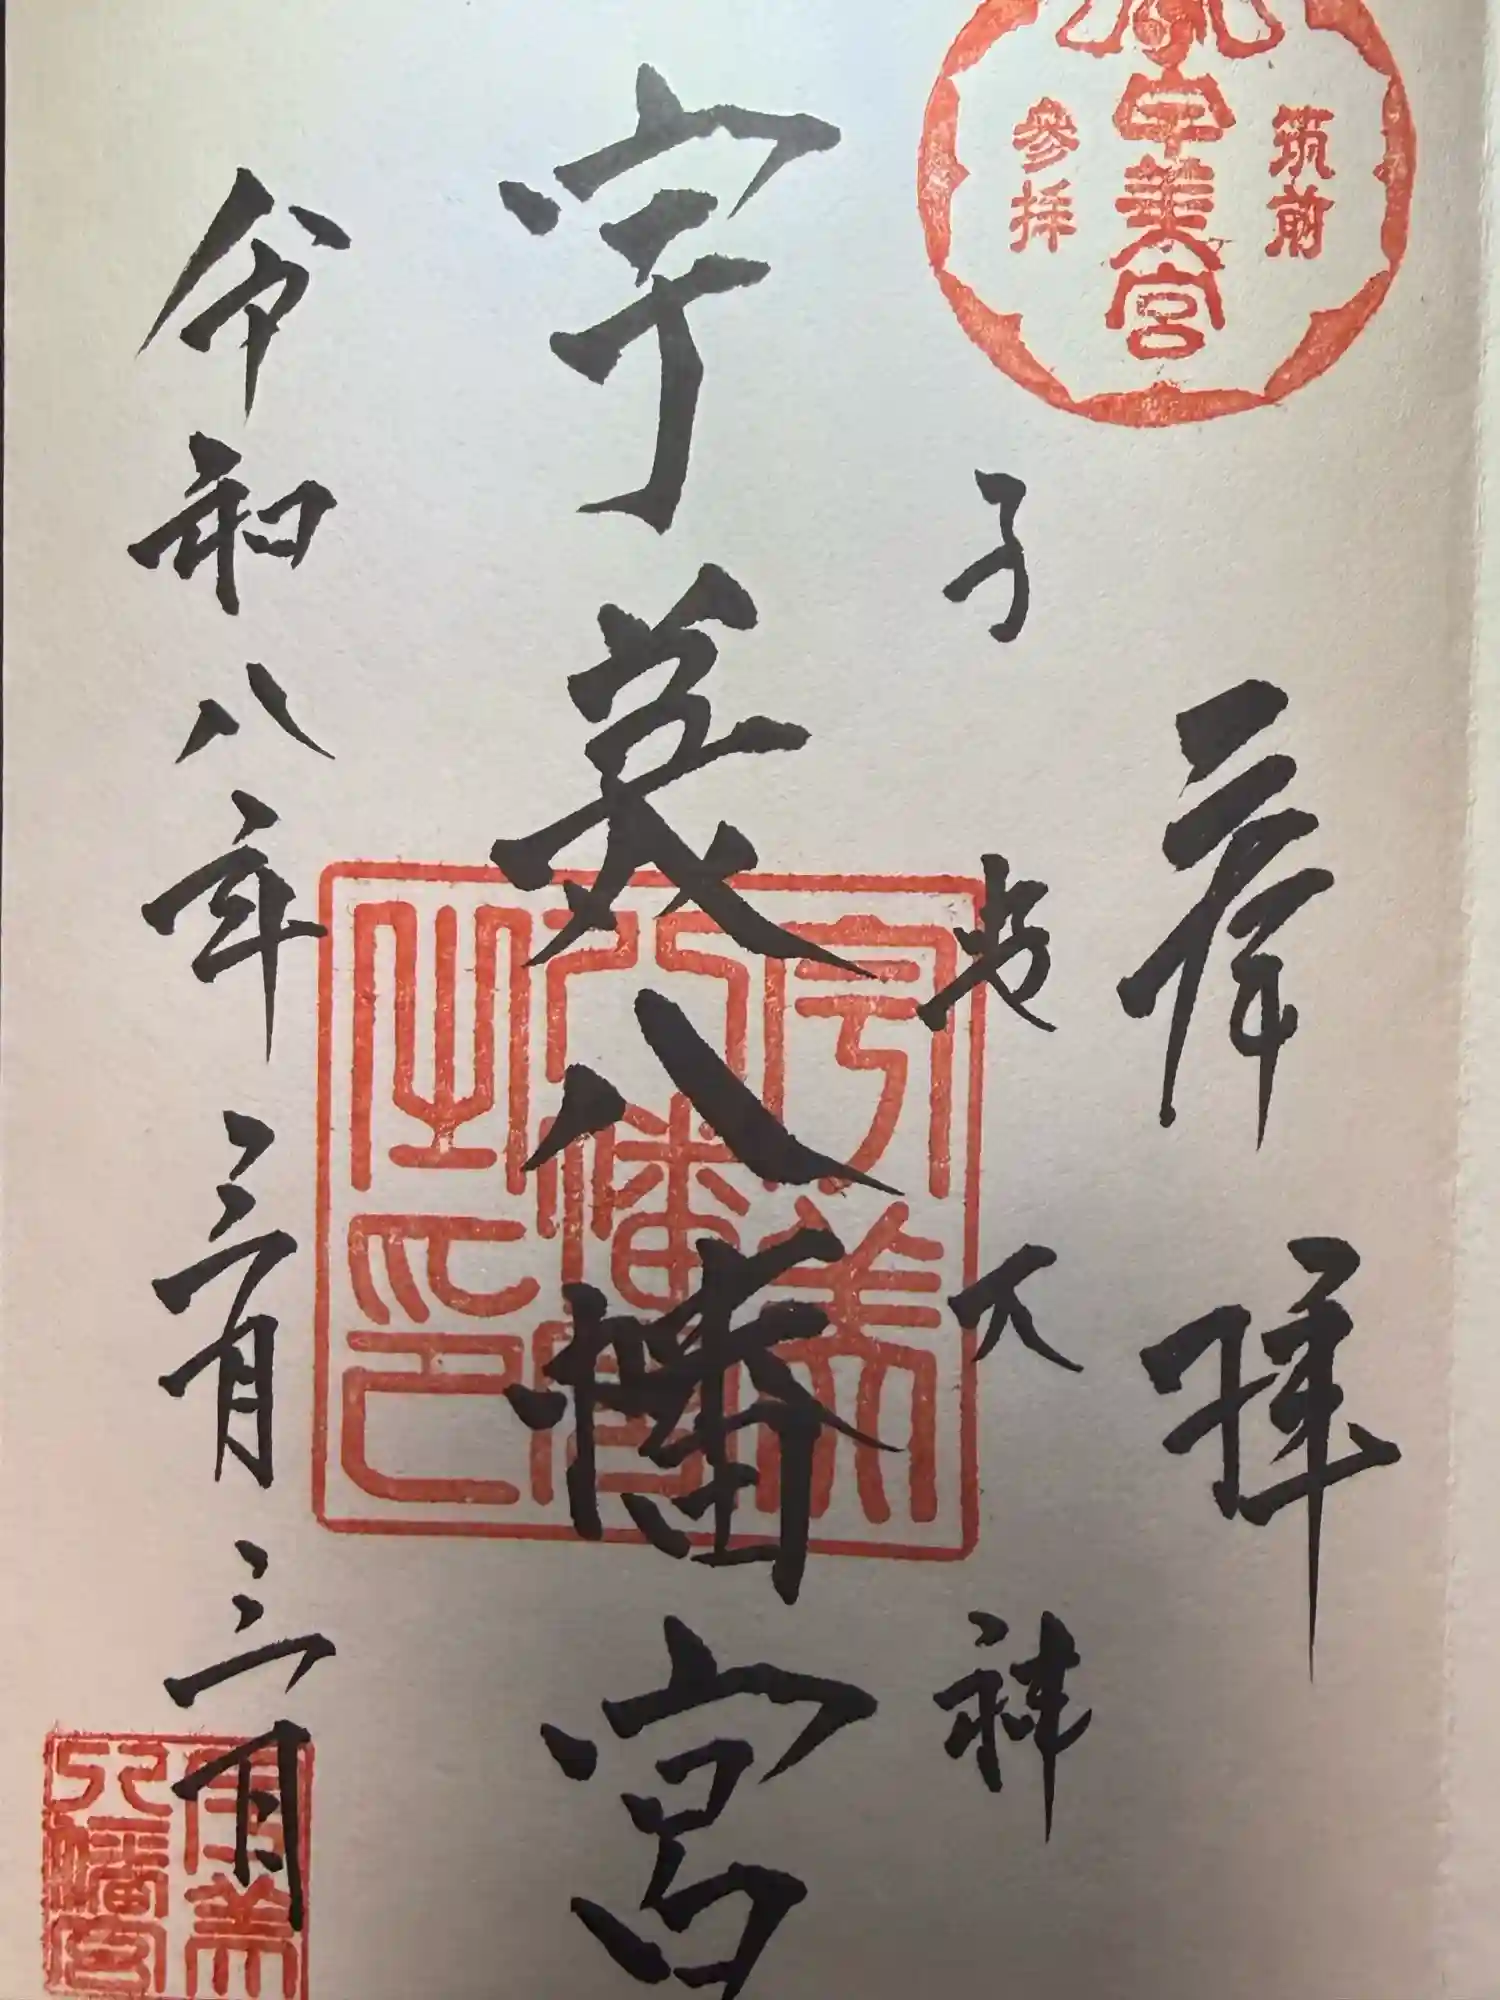 筑前
宇美宮
參拝
奉拝
子安大神
宇美八幡宮
宇美
八幡宮
之印
令和八年三月三日
宇美
八幡宮